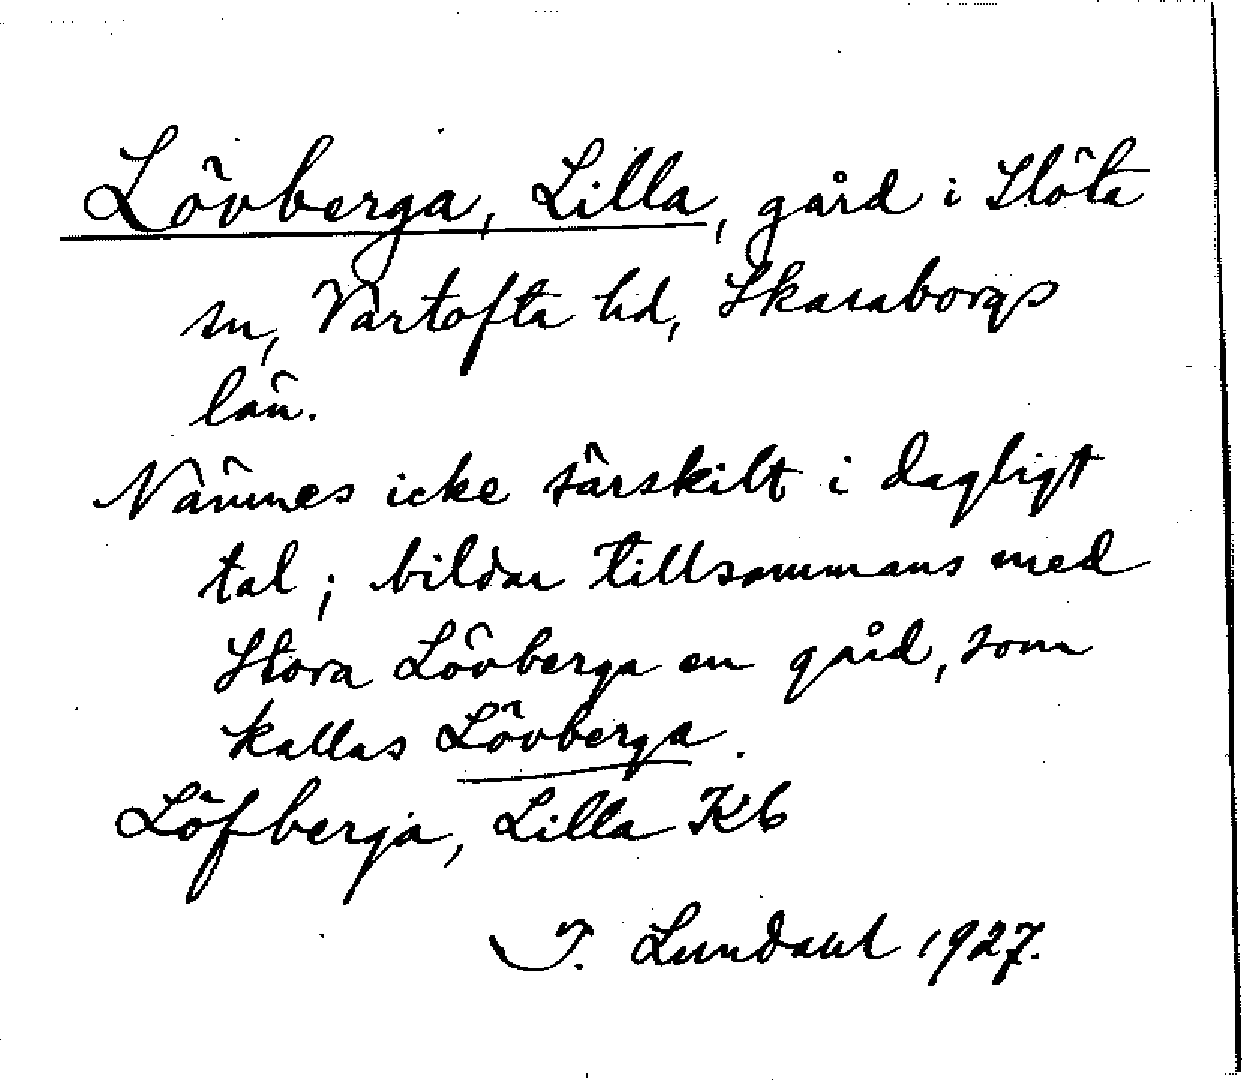 Lövberga, Lilla, gård i Slöta
sn, Vartofta hd, Skaraborgs
län.
Nämnes icke särskilt i dagligt
tal; bildar tillsammans med
Stora Lövberga en gård, som
kallas Lövberga.
Löfberga, Lilla Kb
T. Lundahl 1927.